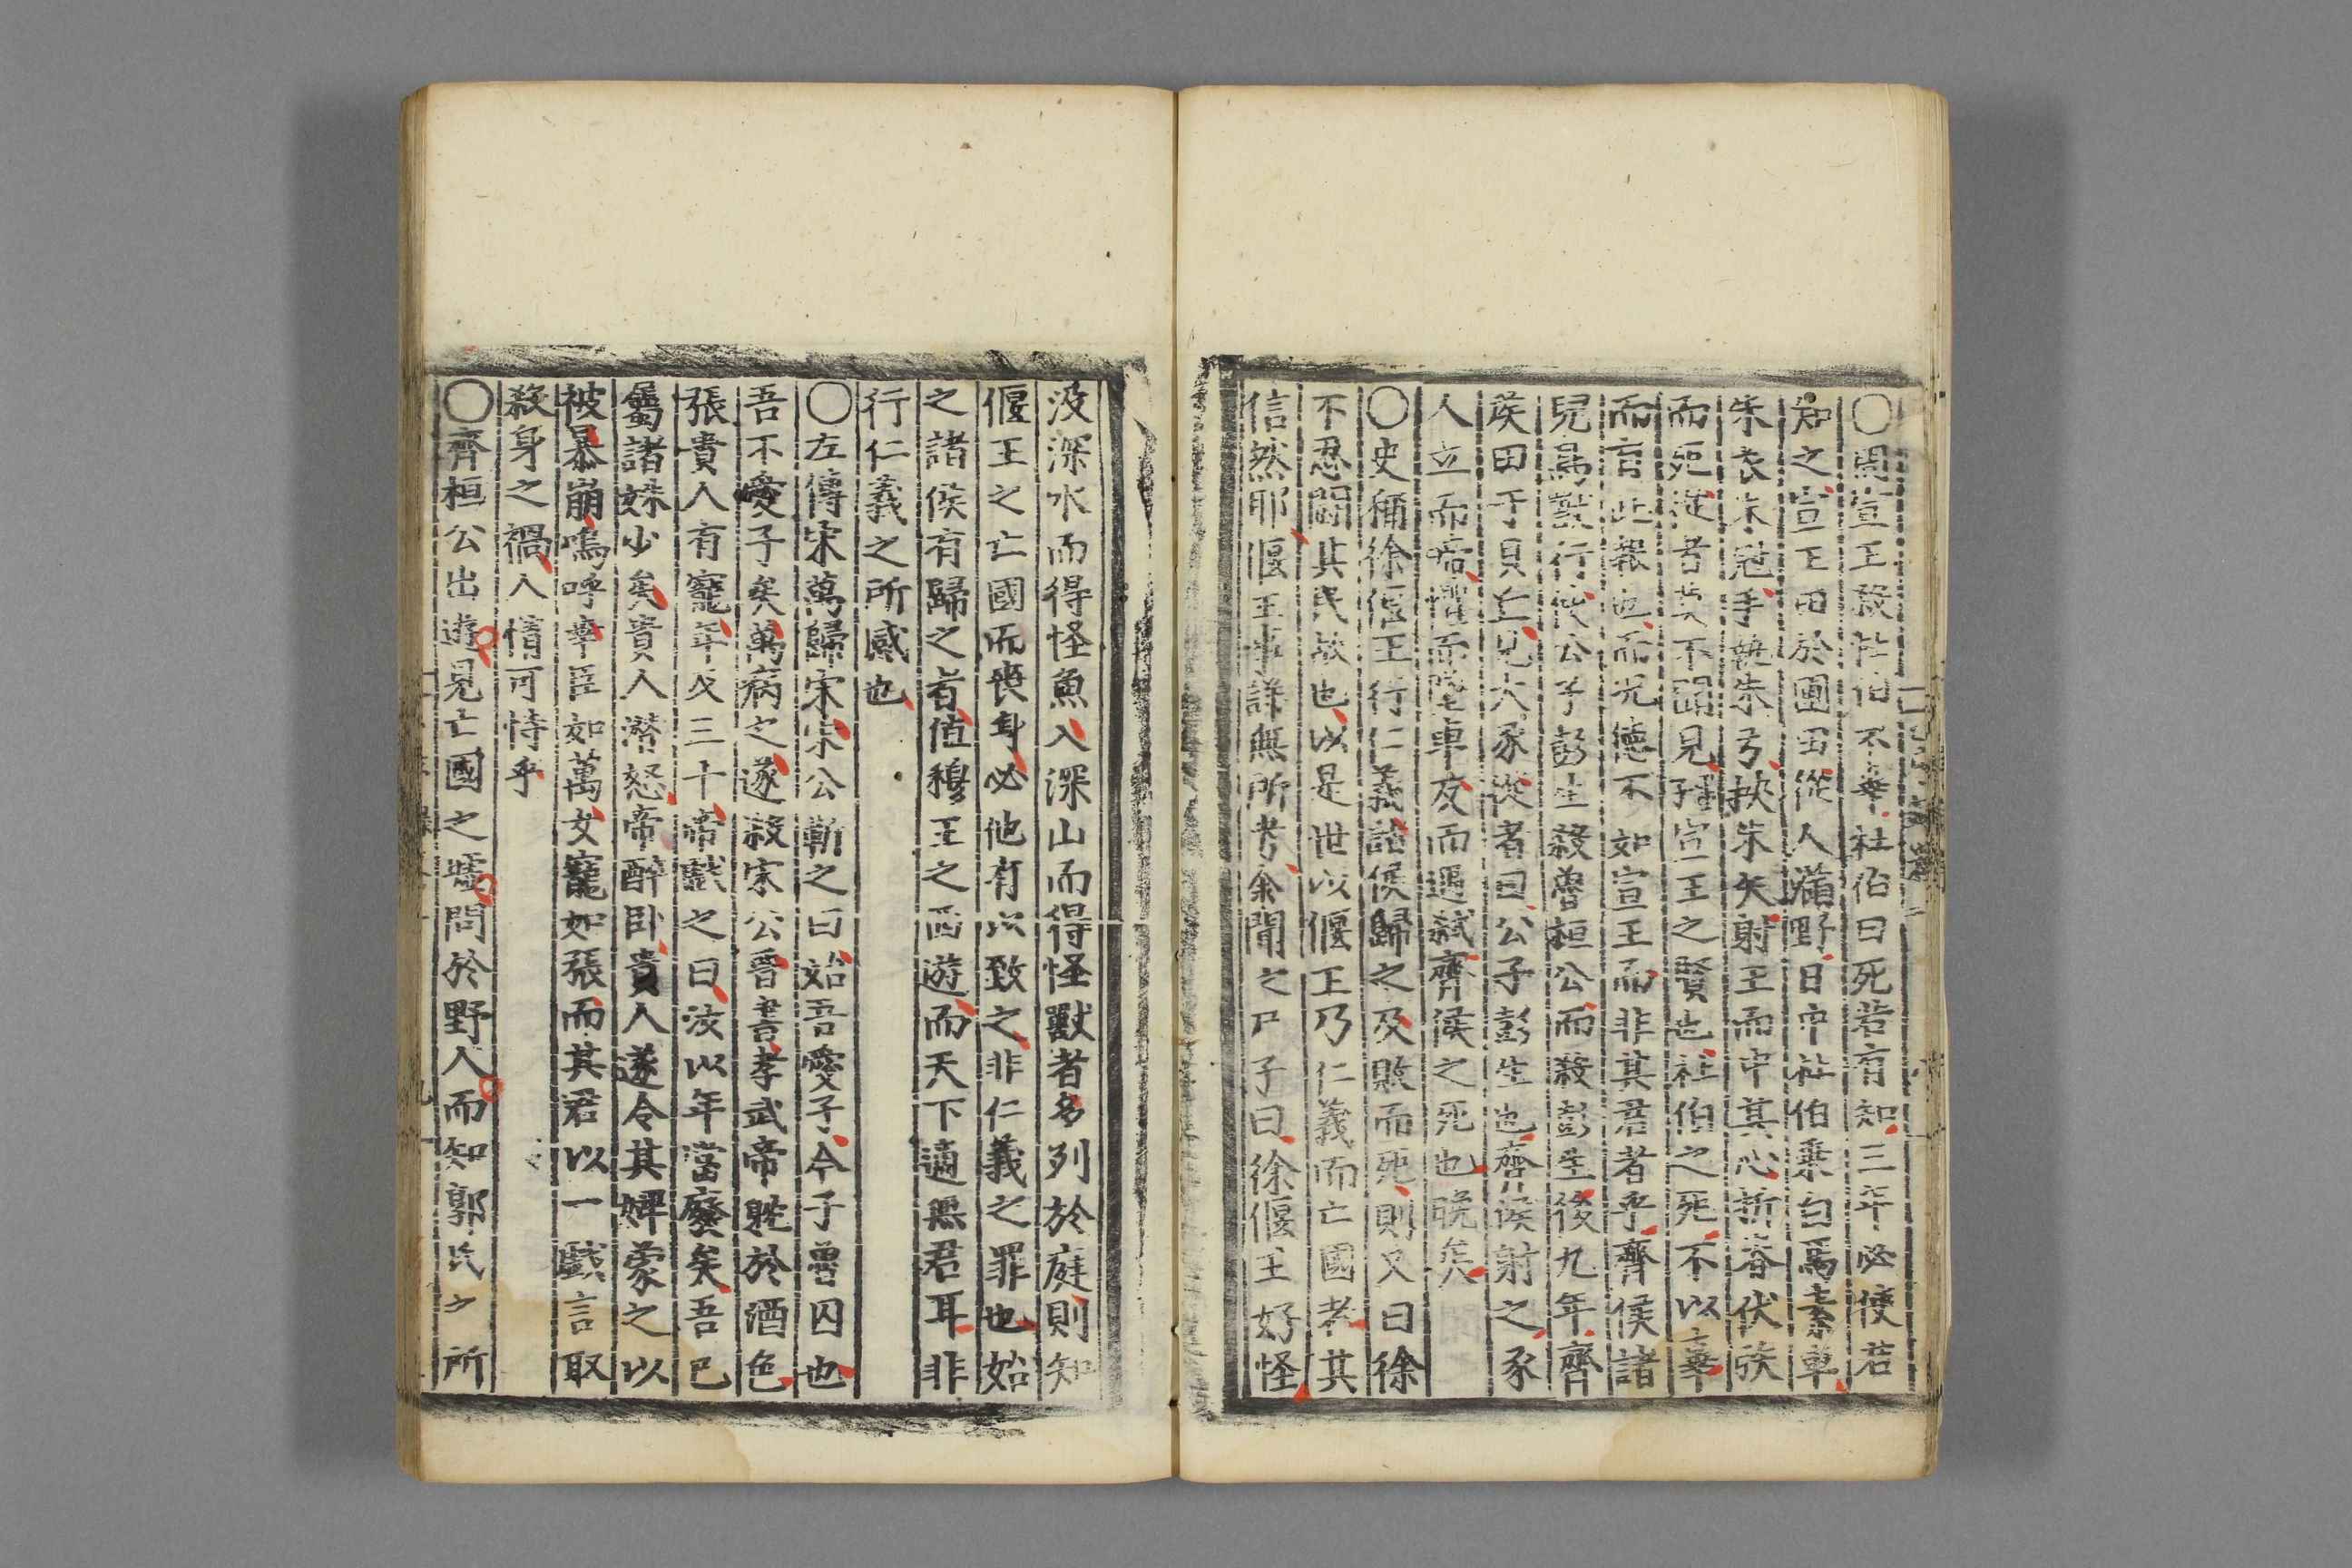 〇周宣王殺杜伯不辜杜伯曰死若有知三年必使君
知之宣王田於圃田從人滿野日中杜伯乘白馬素車
朱衣朱冠手執朱弓挾朱矢射王而中其心折脊伏弢
而死從者莫不踊見宣王之賢也杜伯之死不以辜
而言此報也而元德不如宣王而非其君者乎齊侯諸
兒爲獸行使公子彭生殺魯桓公而殺彭生後九年齊
侯田于貝丘見大豕從者曰公子彭生也齊侯射之豕
人立而啼懼而墜車反而遇弑齊侯之死也晩矣
〇史稱徐偃王行仁義諸侯歸之及敗而死則又曰徐
不忍鬪其民故也以是世以偃王乃仁義而亡國者其
信然耶偃王事詳無所考余聞之尸子曰徐偃王好怪
没深水而得怪魚入深山而得怪獸者多列於庭則知
偃王之亡國而喪身必他有以致之非仁義之罪也始
之諸侯有歸之者值穆王之西遊而天下適無君耳非
行仁義之所感也
〇左傳宋萬歸宋宋公靳之曰始吾愛子今子魯囚也
吾不愛子矣萬病之遂殺宋公晋書孝武帝躭於酒色
張貴人有寵年及三十帝戱之曰汝以年當廢矣吾已
屬諸姝少矣貴人潜怒帝醉卧貴人遂令其婢蒙之以
被暴崩嗚呼幸臣如萬女寵如張而其君以一戱言取
殺身之禍人情可恃乎
〇齊桓公出遊見亡國之墟問於野人而知郭氏之所